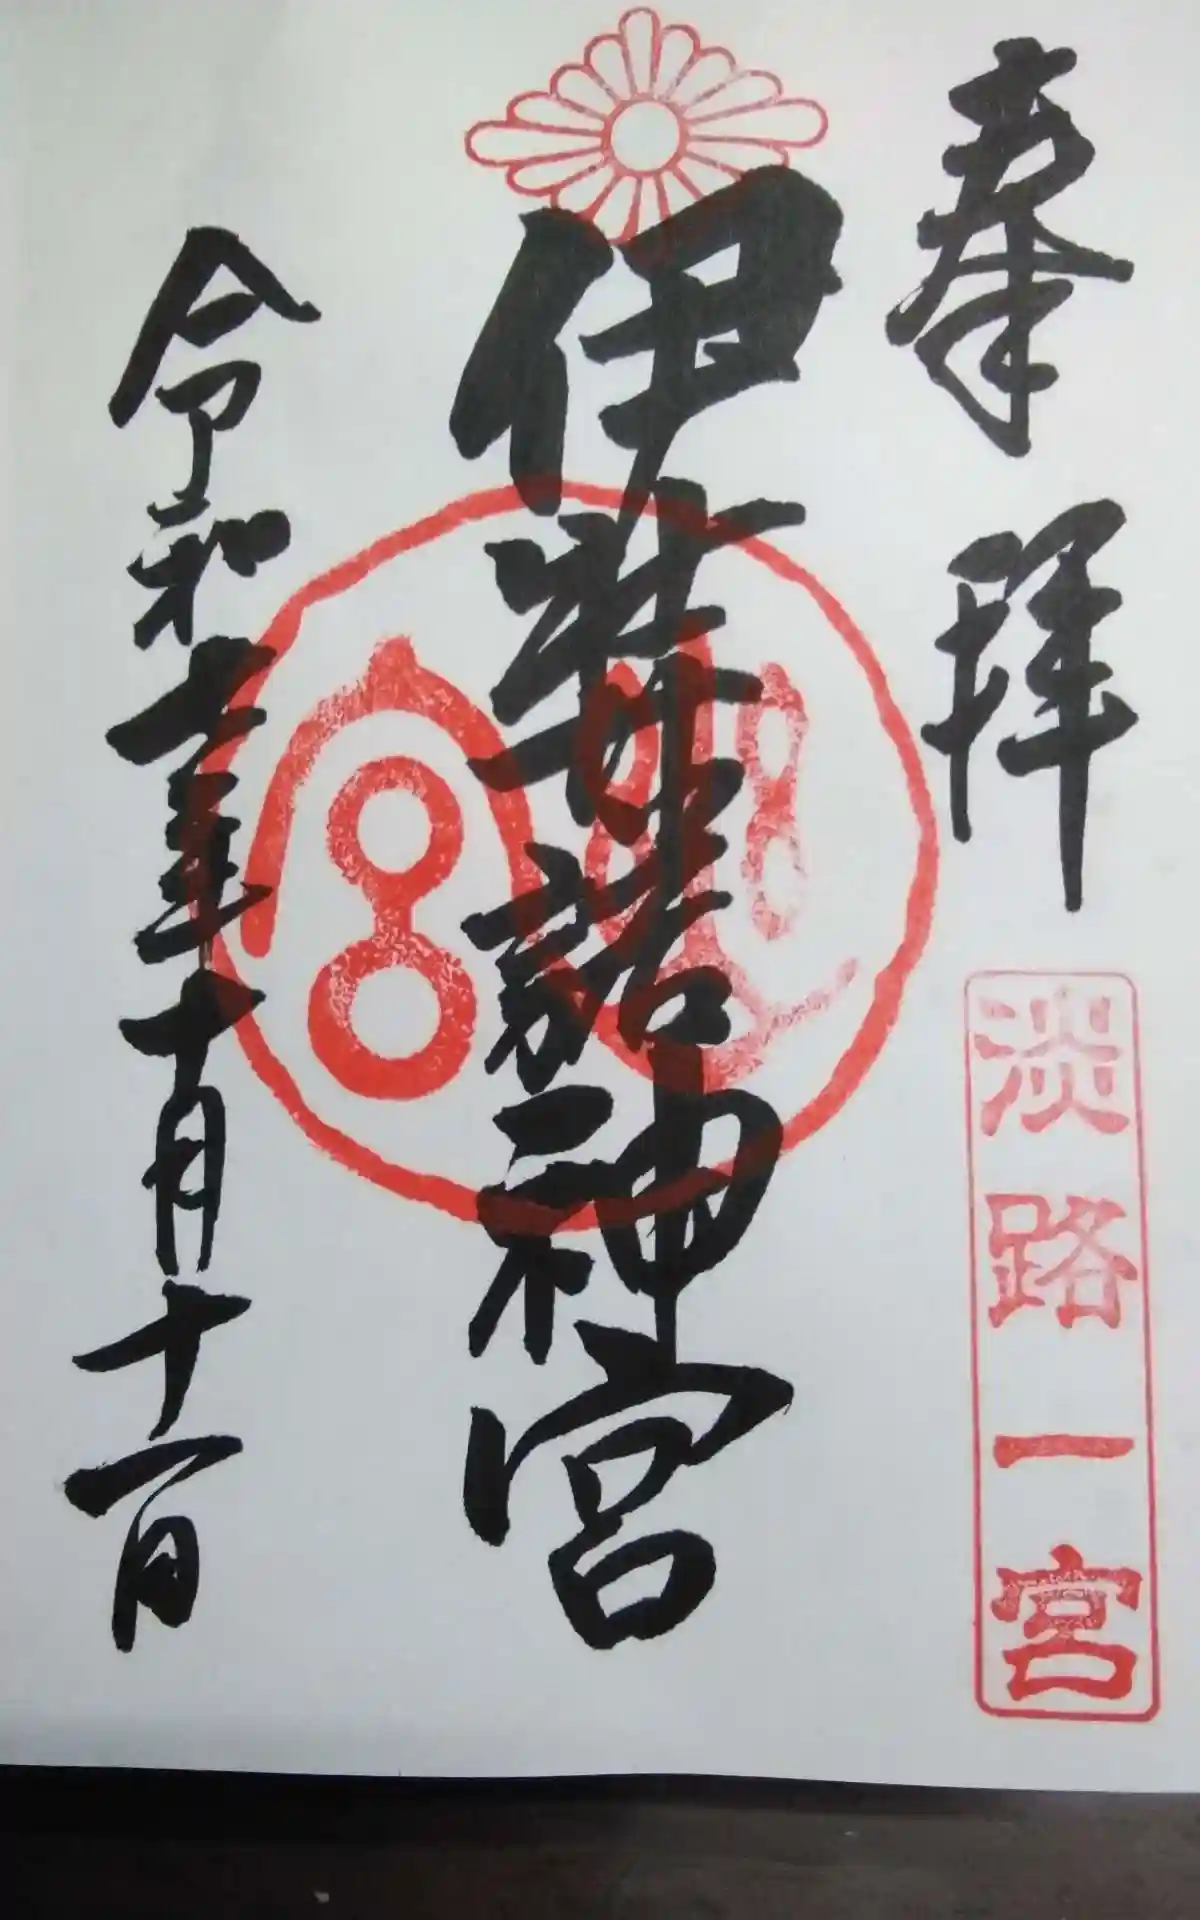 奉拝
淡路一宮
伊弉諾神宮
令和年十月十一日